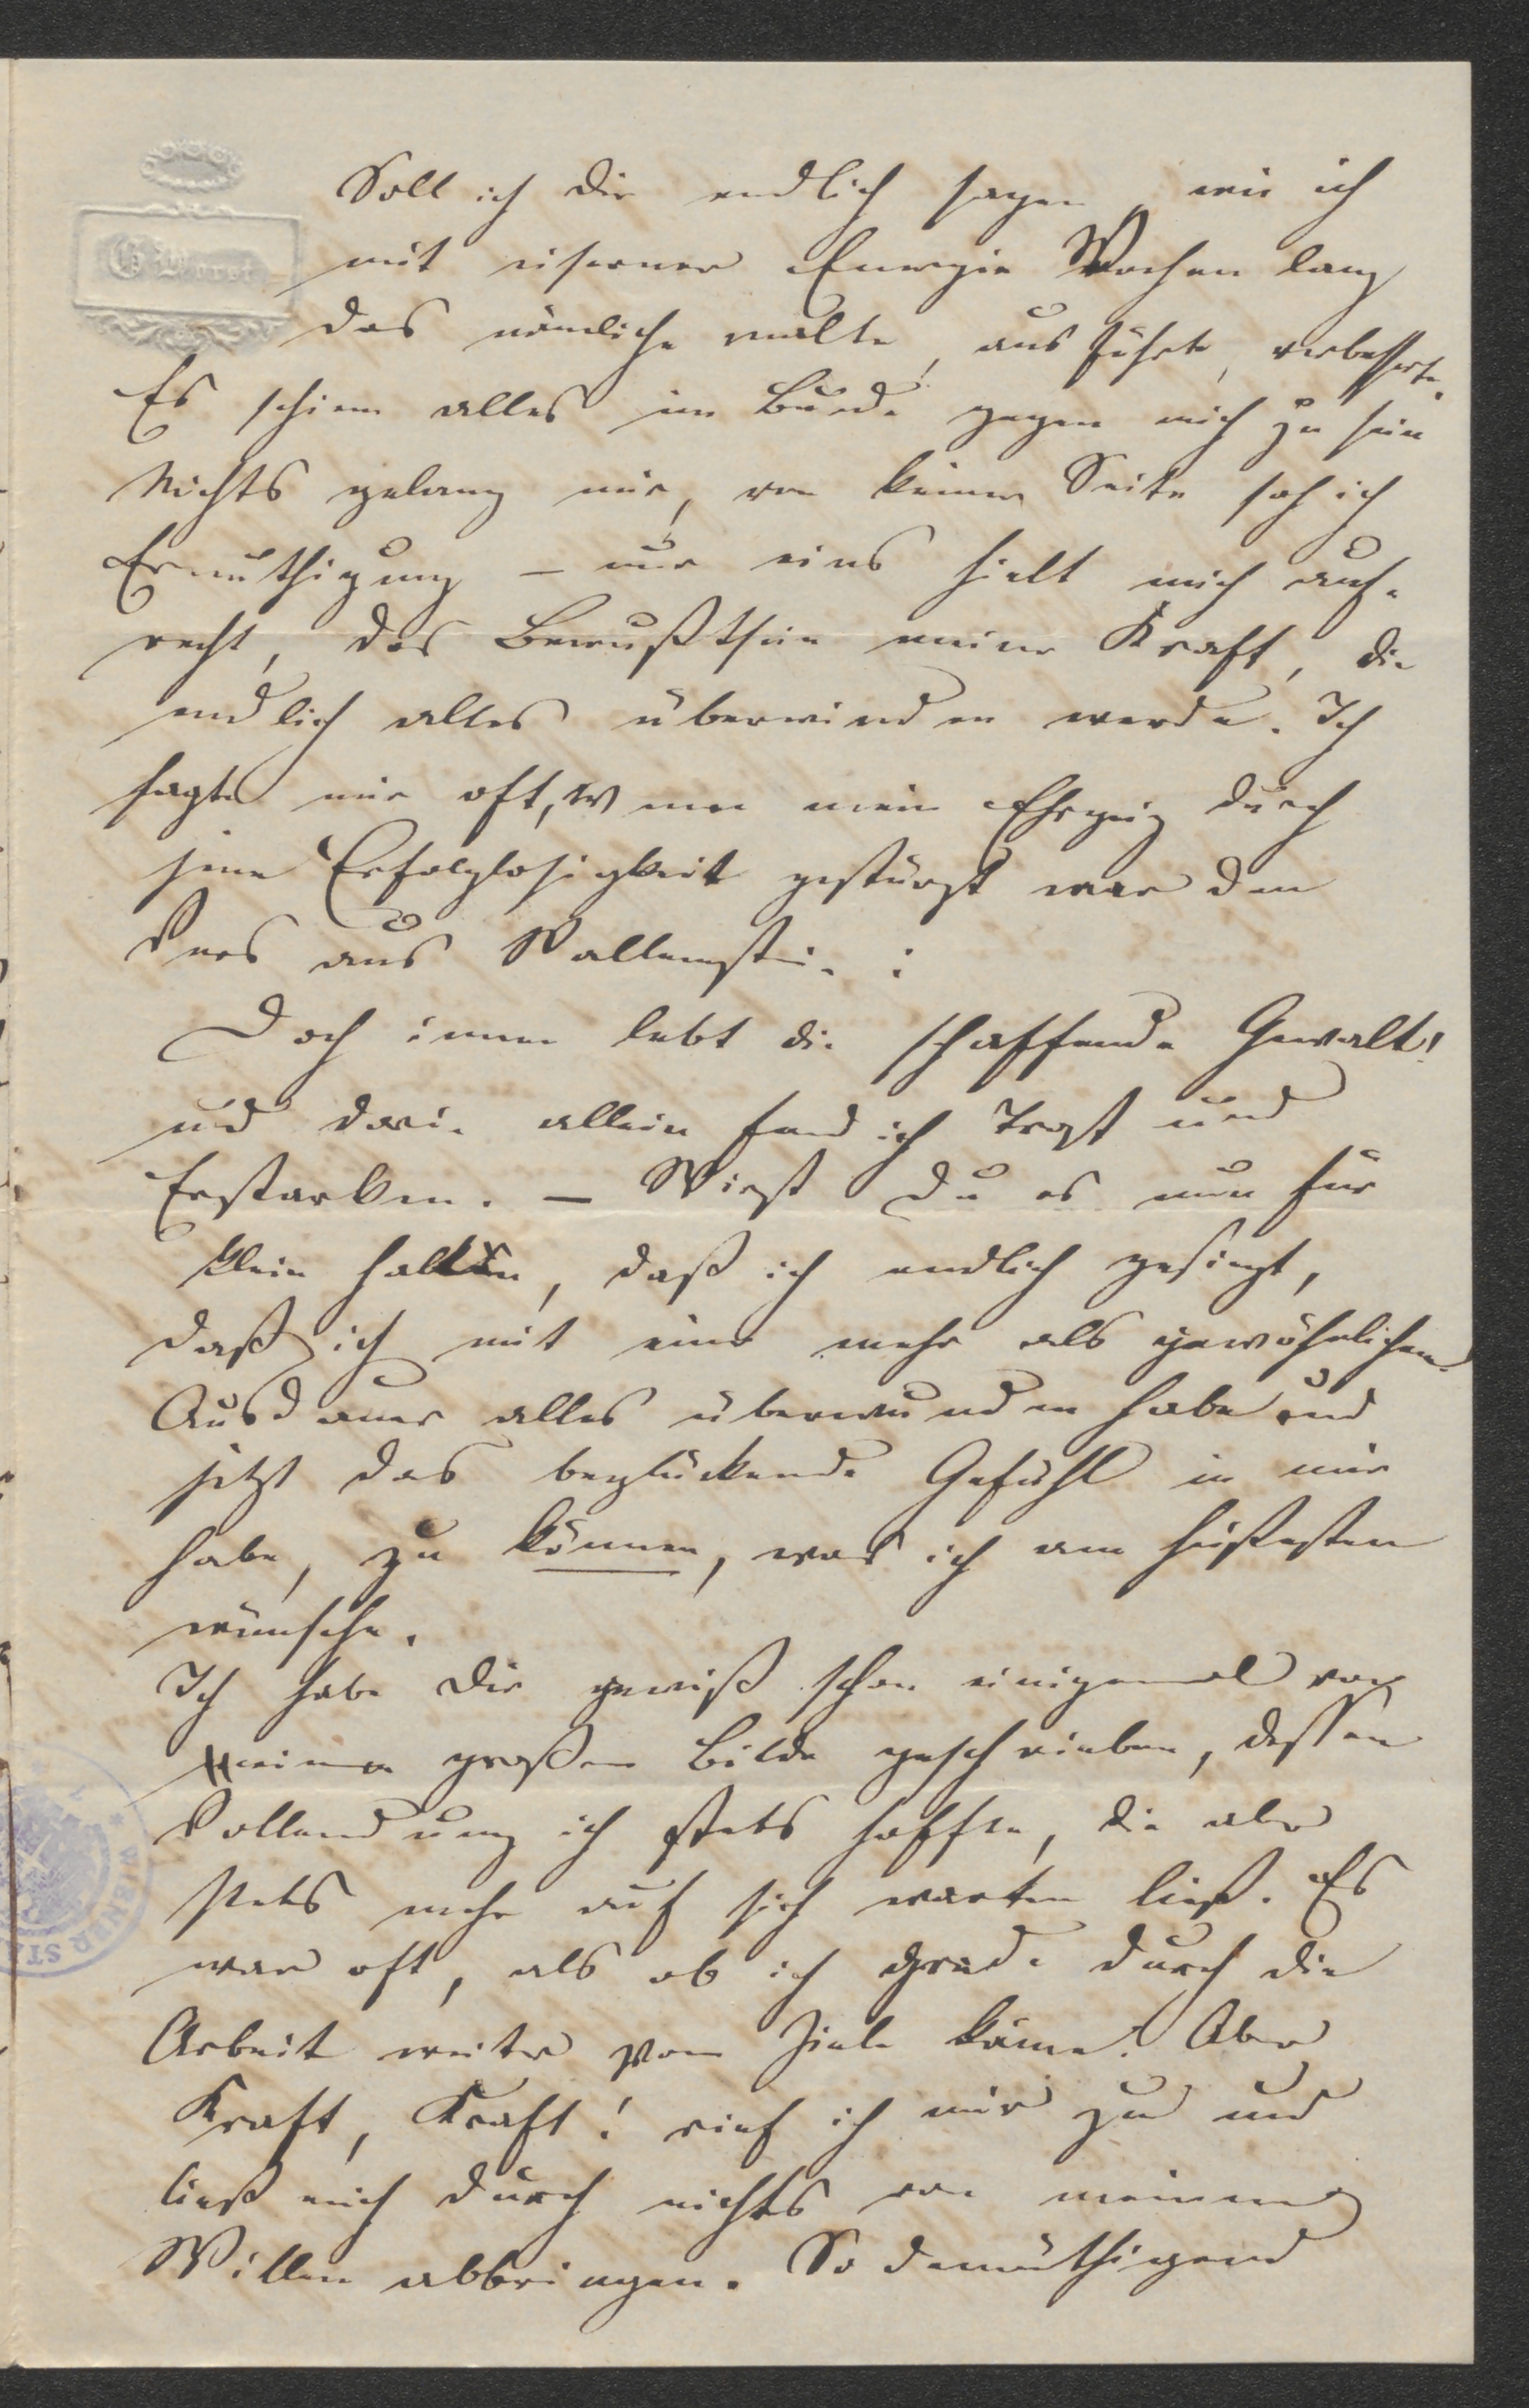 Soll ich dir endlich sagen, wie ich
mit eiserner Energie Wochen lang
das nämliche malte, ausführte, verbesserte.
Es schien alles im Bunde gegen mich zu sein
Nichts gelang mir, von keiner Seite sah ich
Ermuthigung – nur eins hielt mich auf-
recht, das Bewußtsein meiner Kraft, die
endlich alles überwinden werde. Ich
sagte mir oft, wenn mein Ehrgeiz durch
jene Erfolglosigkeit gestürzt war den
Vers aus Wallenstein:
Doch innen lebt die schaffende Gewalt!
und darin allein fand ich Trost und
Erstarken. – Wirst Du es nun für
klein halten, daß ich endlich gesiegt,
daß ich mit einer mehr als gewöhnlichen
Ausdauer alles überwunden habe und
jetzt das beglückende Gefühl in mir
habe, zu können, was ich am heißesten
wünsche.
Ich habe dir gewiß schon einigemal von
meinem großen Bilde geschrieben, dessen
Vollendung ich stets hoffte, die aber
stets mehr auf sich warten ließ. Es
war oft, als ob ich grade durch die
Arbeit weiter vom Ziele käme. Aber
Kraft, Kraft! rief ich mir zu und
ließ mich durch nichts von meinem
Willen abbringen. So demüthigend
WIENER ST